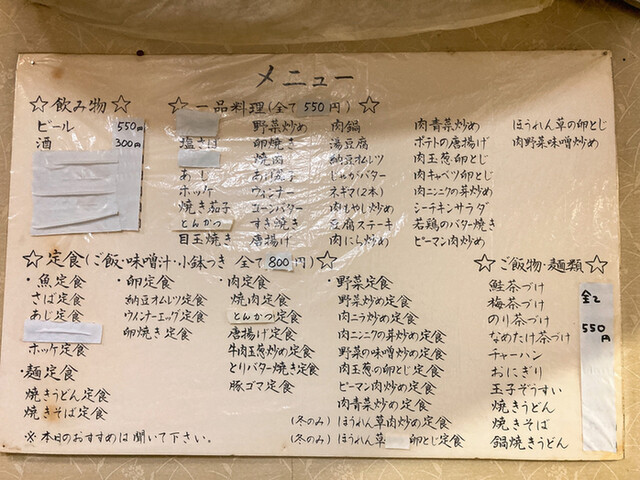 メニュー
☆飲み物☆
ビール 550円
酒 300円
☆一品料理(全て550円)☆
塩さば
あじ
ホッケ
焼き茄子
とんかつ
目玉焼き
野菜炒め
卵焼き
焼肉
あげ茄子
ウィンナー
コーンバター
すき焼き
唐揚げ
肉鍋
湯豆腐
納豆オムレツ
じゃがバター
ネギマ(2本)
肉もやし炒め
豆腐ステーキ
肉にら炒め
肉青菜炒め
ポテトの唐揚げ
肉玉葱卵とじ
肉キャベツ卵とじ
肉ニンニクの芽炒め
シーチキンサラダ
若鶏のバター焼き
ピーマン肉炒め
ほうれん草の卵とじ
肉野菜味噌炒め
☆定食(ご飯・味噌汁・小鉢つき 全て800円)☆
・魚定食
さば定食
あじ定食
ホッケ定食
・麺定食
焼きうどん定食
焼きそば定食
・卵定食
納豆オムレツ定食
ウィンナーエッグ定食
卵焼き定食
・肉定食
焼肉定食
とんかつ定食
唐揚げ定食
牛肉玉葱炒め定食
とりバター焼き定食
豚ゴマ定食
・野菜定食
野菜炒め定食
肉ニラ炒め定食
肉ニンニクの芽炒め定食
野菜の味噌炒め定食
肉玉葱の卵とじ定食
ピーマン肉炒め定食
肉青菜炒め定食
(冬のみ) ほうれん草肉炒め定食
(冬のみ) ほうれん草 卵とじ定食
☆ご飯物・麺類☆
全て550円
鮭茶づけ
梅茶づけ
のり茶づけ
なめたけ茶づけ
チャーハン
おにぎり
玉子ぞうすい
焼きうどん
焼きそば
鍋焼きうどん
※本日のおすすめは聞いて下さい。